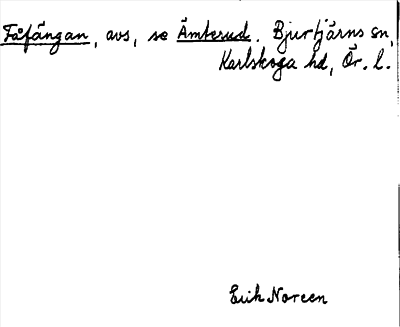 Fåfängan, avs, se Ämterud. Bjurtjärns sn,
Karlskoga hd, Ör. l.
Erik Noreen